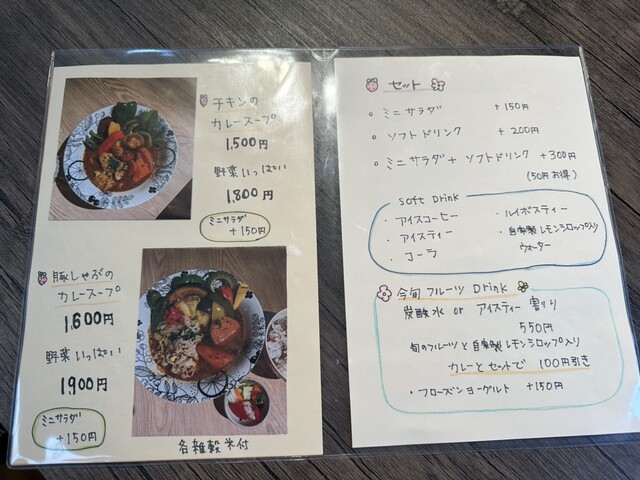 チキンの
カレースープ
1,500円
野菜いっぱい
1,800円
ミニサラダ
+150円
豚しゃぶの
カレースープ
1,600円
野菜いっぱい
1,900円
ミニサラダ
+150円
各雑穀米付
セット
・ミニサラダ +150円
・ソフトドリンク +200円
・ミニサラダ+ソフトドリンク +300円
(50円お得)
Soft Drink
・アイスコーヒー
・アイスティー
・コーラ
・ルイボスティー
・自家製レモンシロップ入り
ウォーター
今旬フルーツ Drink
炭酸水 or アイスティー 割り
550円
旬のフルーツと自家製レモンシロップ入り
カレーとセットで 100円引き
・フローズンヨーグルト +150円